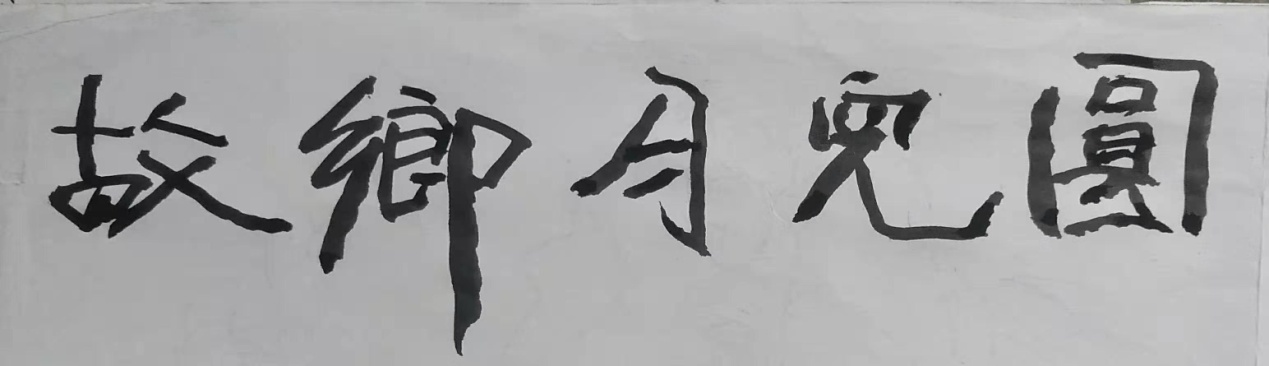 故鄉月兒圓